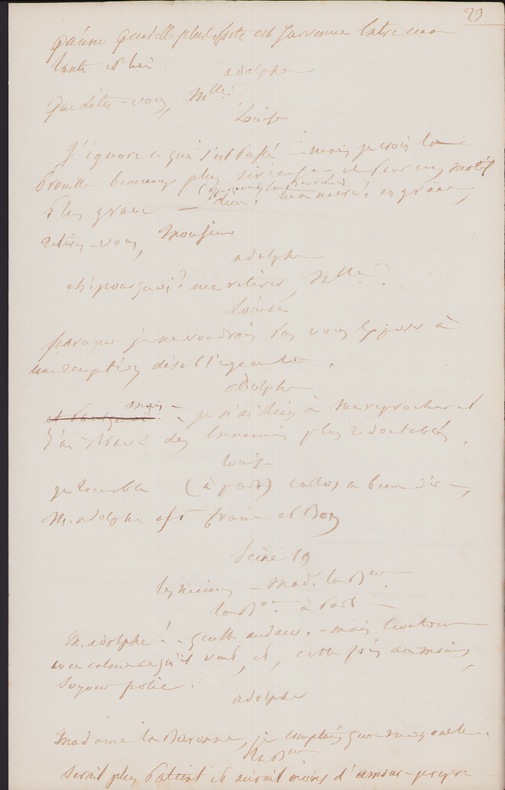 23
qu'une querelle plus forte est survenue entre ma
tante et lui.
adolphe
Que dites-vous, Mlle?
Louise
J'ignore ce qui s'est passé - mais je crois la
brouille beaucoup plus sérieuse et pour un motif
plus grave — dieu! ma tante! en grâce,
retirez-vous, Monsieur
adolphe
eh! pourquoi? me retirer, Mlle?
Louise
parce que je ne voudrais pas vous exposer à
une réception désobligeante.
adolphe
mais - je n'ai rien à me reprocher et
j'ai bravé des ennemis plus redoutables.
Louise
je tremble (à part) Carlos a beau dire,
M. adolphe est franc et bon
Scène 19
les mêmes - Mad. la Bne
la Bne à part
M. adolphe! - quelle audace. - mais
avec calme ce qu'il veut, et, cette fois au moins,
soyons polie.
adolphe
Madame la Baronne, je comptais que
la Bne
serait plus patient et aurait moins d'amour-propre